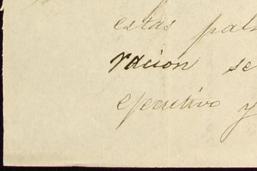 estas pala
racion se
ejecutivo y